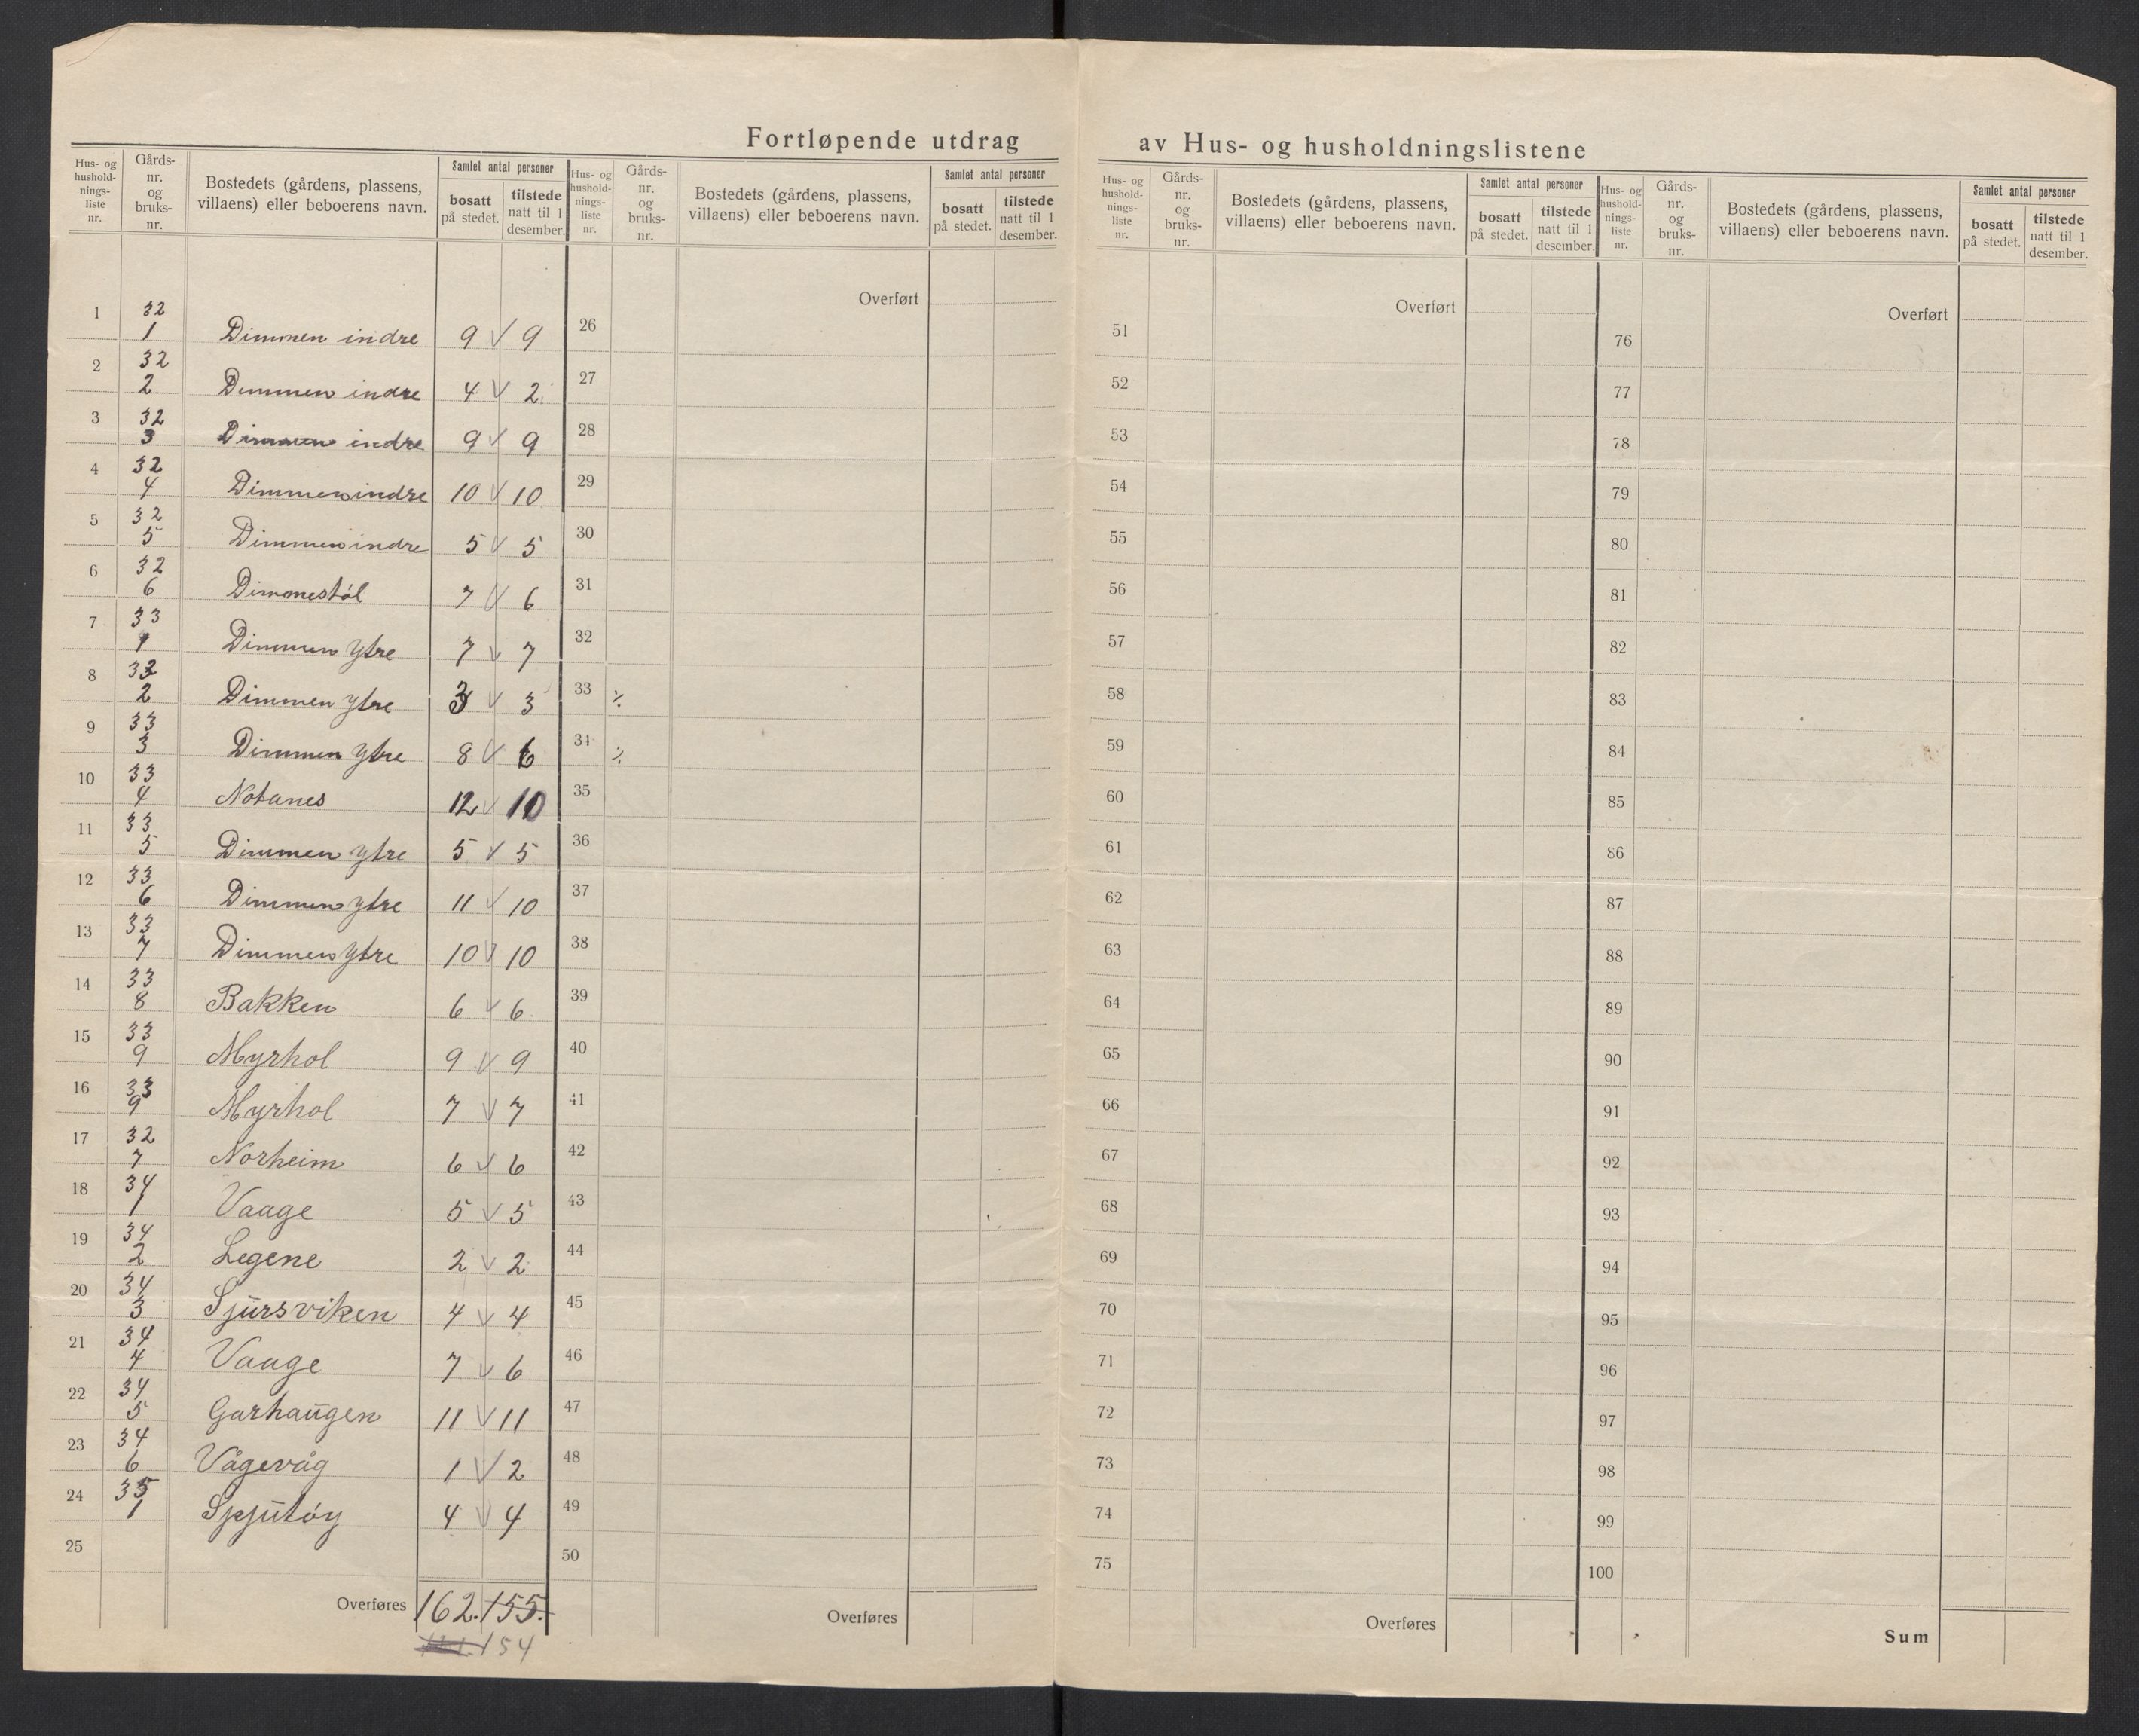 Fortløpende utdrag av Hus- og husholdningslistene
Hus- og hushold-nings-liste nr. Gårds-nr. og bruks-nr. Bostedets (gårdens, plassens, villaens) eller beboerens navn. Samlet antal personer bosatt på stedet. tilstede natt til 1 desember.
Hus- og hushold-nings-liste nr. Gårds-nr. og bruks-nr. Bostedets (gårdens, plassens, villaens) eller beboerens navn. Samlet antal personer bosatt på stedet. tilstede natt til 1 desember.
Hus- og hushold-nings-liste nr. Gårds-nr. og bruks-nr. Bostedets (gårdens, plassens, villaens) eller beboerens navn. Samlet antal personer bosatt på stedet. tilstede natt til 1 desember.
Hus- og hushold-nings-liste nr. Gårds-nr. og bruks-nr. Bostedets (gårdens, plassens, villaens) eller beboerens navn. Samlet antal personer bosatt på stedet. tilstede natt til 1 desember.
1 32 1 Dimmen indre 9 V 9
2 32 2 Dimmen indre 4 V 2
3 32 3 Dimmen indre 9 V 9
4 32 4 Dimmen indre 10 V 10
5 32 5 Dimmen indre 5 V 5
6 32 6 Dimmestøl 7 V 6
7 33 1 Dimmen ytre 7 V 7
8 33 2 Dimmen ytre 3 V 3
9 33 3 Dimmen ytre 8 V 6
10 33 4 Notanes 12 V 10
11 33 5 Dimmen ytre 5 V 5
12 33 6 Dimmen ytre 11 V 10
13 33 7 Dimmen ytre 10 V 10
14 33 8 Bakken 6 V 6
15 33 9 Myrhol 9 V 9
16 33 9 Myrhol 7 V 7
17 32 7 Norheim 6 V 6
18 34 1 Vaage 5 V 5
19 34 2 Legene 2 V 2
20 34 3 Sjursviken 4 V 4
21 34 4 Vaage 7 V 6
22 34 5 Garhaugen 11 V 11
23 34 6 Vågevåg 1 V 2
24 35 1 Spjutøy 4 V 4
25
Overføres 162. 155.
154
Overført
26
27
28
29
30
31
32
33 ./.
34 ./.
35
36
37
38
39
40
41
42
43
44
45
46
47
48
49
50
Overføres
Overført
51
52
53
54
55
56
57
58
59
60
61
62
63
64
65
66
67
68
69
70
71
72
73
74
75
Overføres
Overført
76
77
78
79
80
81
82
83
84
85
86
87
88
89
90
91
92
93
94
95
96
97
98
99
100
Sum